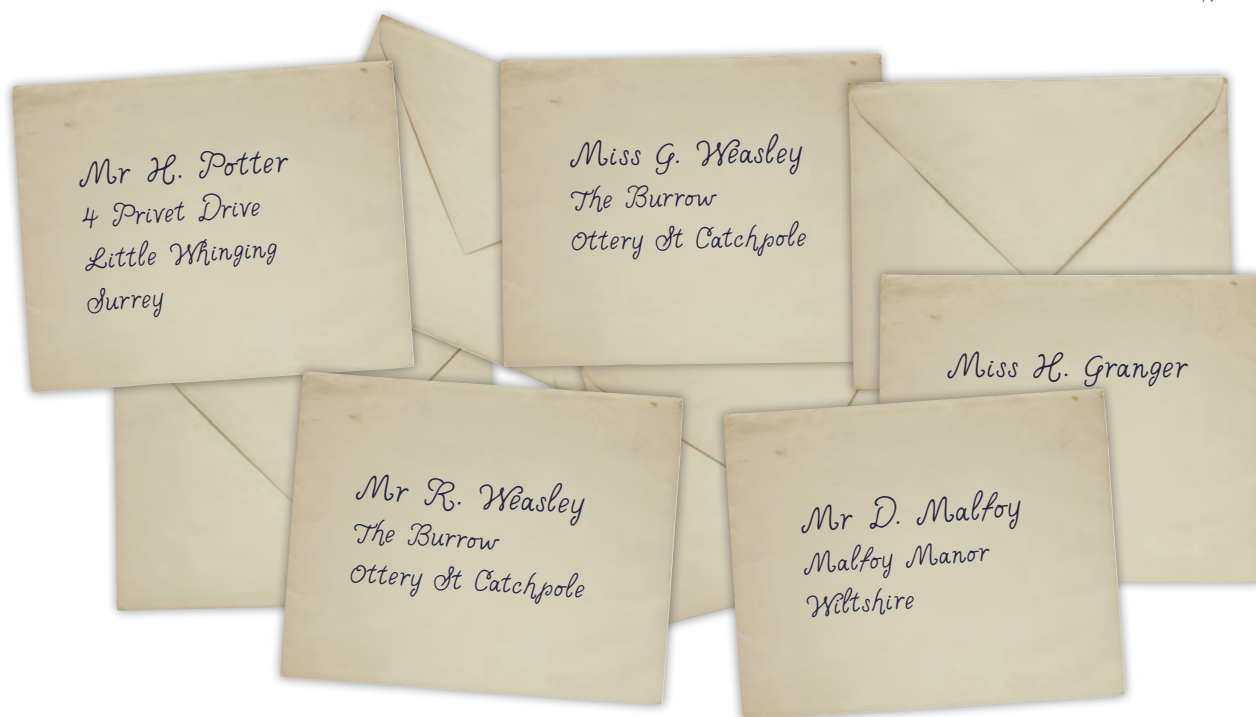 Mr H. Potter
4 Privet Drive
Little Whinging
Surrey
Miss G. Weasley
The Burrow
Ottery St Catchpole
Miss H. Granger
Mr R. Weasley
The Burrow
Ottery St Catchpole
Mr D. Malfoy
Malfoy Manor
Wiltshire